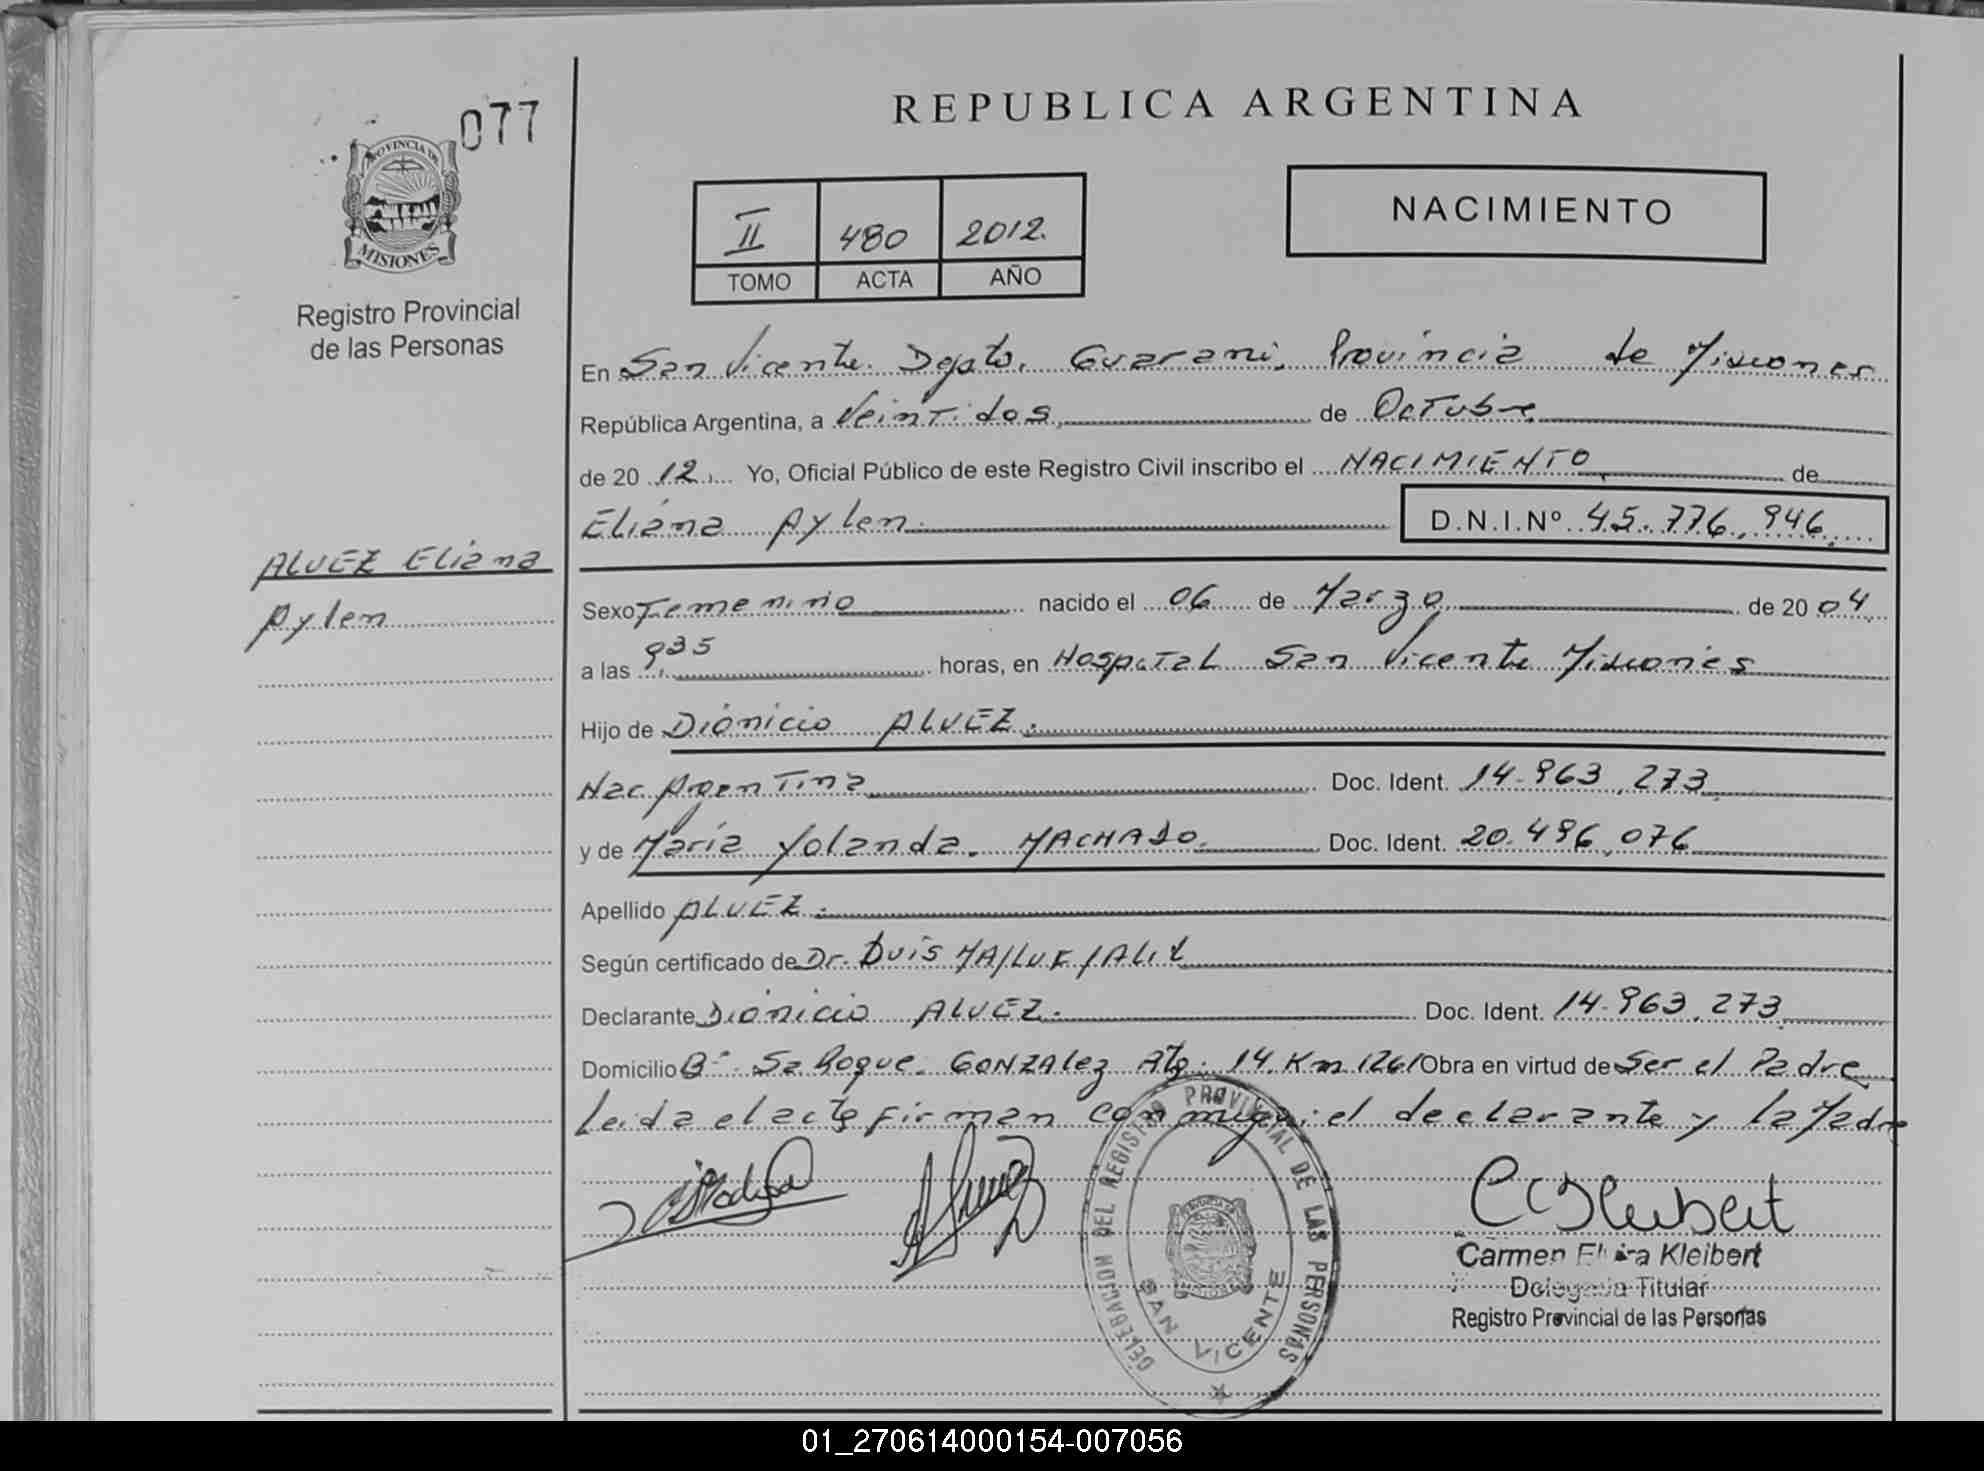 077
REPUBLICA ARGENTINA
PROVINCIA DE
MISIONES
Registro Provincial
de las Personas
NACIMIENTO
II 480 2012.
TOMO ACTA AÑO
En San Vicente. Dpto. Guarani. Provincia de Misiones
República Argentina, a Veintidos de Octubre
de 20 12 Yo, Oficial Público de este Registro Civil inscribo el NACIMIENTO de
Eliana Aylen. D.N.I.Nº 45.776.946
ALVEZ Eliana
Aylen
Sexo Femenino nacido el 06 de Marzo de 20 04
a las 935 horas, en Hospital San Vicente Misiones
Hijo de Dionicio ALVEZ.
Nac Argentina Doc. Ident. 14.963.273
y de Maria Yolanda. MACHADO. Doc. Ident. 20.496.076
Apellido ALVEZ.
Según certificado de Dr. Luis
Declarante Dionicio ALVEZ. Doc. Ident. 14.963.273
Domicilio Bº Sa Roque. GONZALez 14. Km 1261 Obra en virtud de Ser el Padre
Leida el acta firman conmigo: el declarante y la Madre
DELEGACION DEL REGISTRO PROVINCIAL DE LAS PERSONAS
SAN VICENTE
Carmen Elvira Kleibert
Delegada Titular
Registro Provincial de las Personas
01_270614000154-007056